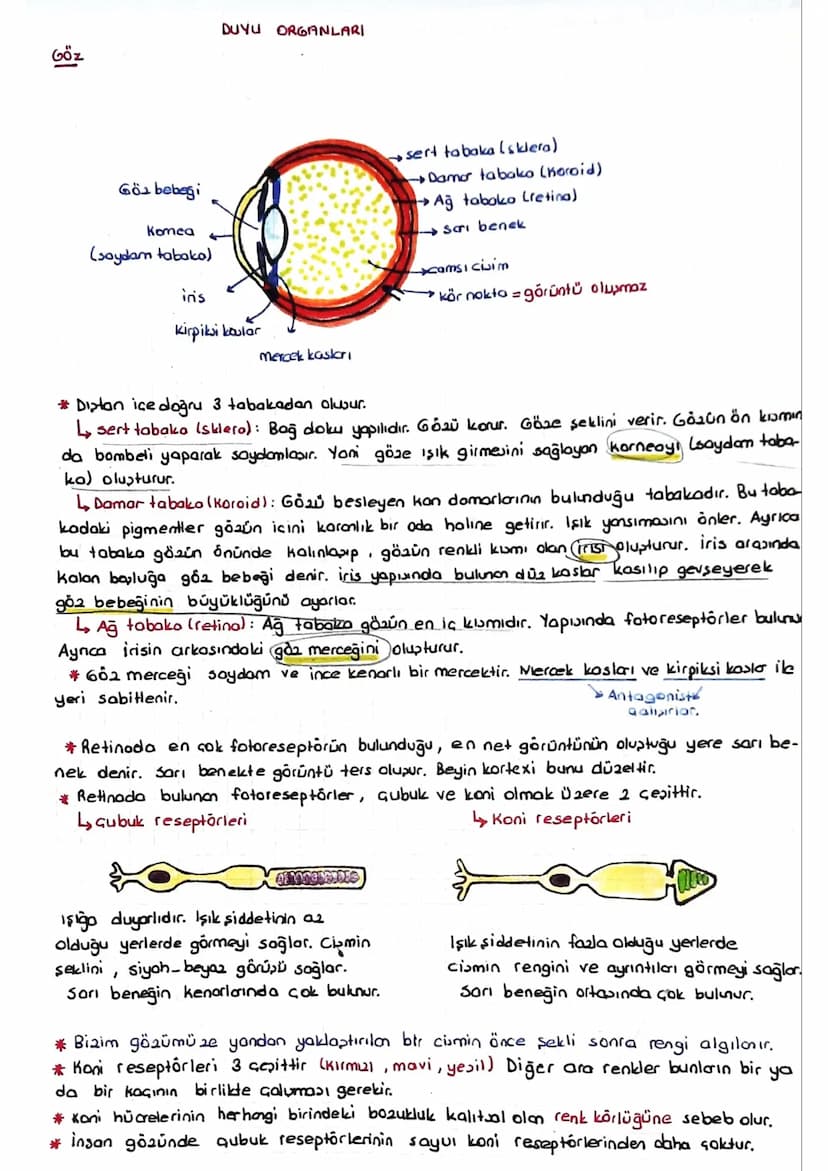 DUYU ORGANLARI
Göz
sert tabaka (sklera)
Damar tabaka (Koroid)
Ağ tabaka (retina)
sarı benek
camsı cisim
kör nokta = görüntü oluşmaz
Göz bebeği
Kornea
(saydam tabaka)
iris
kirpiksi kaslar
mercek kasları
* Dıştan içe doğru 3 tabakadan oluşur.
↳ sert tabaka (sklera): Bağ doku yapılıdır. Gözü korur. Göze şeklini verir. Gözün ön kısmın
da bombeli yaparak saydamlaşır. Yani göze ışık girmesini sağlayan korneayı (saydam taba-
ka) oluşturur.
↳ Damar tabaka (Koroid): Gözü besleyen kan damarlarının bulunduğu tabakadır. Bu taba-
kadaki pigmentler gözün içini karanlık bir oda haline getirir. Işık yansımasını önler. Ayrıca
bu tabaka gözün önünde kalınlaşıp, gözün renkli kısmı olan irisi oluşturur. iris arasında
kalan boşluğa göz bebeği denir. iris yapısında bulunan düz kaslar kasılıp gevşeyerek
göz bebeğinin büyüklüğünü ayarlar.
↳ Ağ tabaka (retina): Ağ tabaka gözün en iç kısmıdır. Yapısında fotoreseptörler bulunur
Ayrıca irisin arkasındaki göz merceğini oluşturur.
* Göz merceği saydam ve ince kenarlı bir mercektir. Mercek kasları ve kirpiksi kaslar ile
yeri sabitlenir.
Antagonist
çalışırlar.
* Retinada en çok fotoreseptörün bulunduğu, en net görüntünün oluştuğu yere sarı be-
nek denir. Sarı benekte görüntü ters oluşur. Beyin kortexi bunu düzeltir.
* Retinada bulunan fotoreseptörler, çubuk ve koni olmak üzere 2 çeşittir.
↳ Çubuk reseptörleri
↳ Koni reseptörleri
Işığa duyarlıdır. Işık şiddetinin az
olduğu yerlerde görmeyi sağlar. Cismin
şeklini, siyah-beyaz görüşü sağlar.
Sarı beneğin kenarlarında çok bulunur.
Işık şiddetinin fazla olduğu yerlerde
cismin rengini ve ayrıntıları görmeyi sağlar.
Sarı beneğin ortasında çok bulunur.
* Bizim gözümüze yandan yaklaştırılan bir cismin önce şekli sonra rengi algılanır.
* Koni reseptörleri 3 çeşittir (kırmızı, mavi, yeşil) Diğer ara renkler bunların bir ya
da bir kaçının birlikte çalışması gerekir.
* Koni hücrelerinin herhangi birindeki bozukluk kalıtsal olan renk körlüğüne sebeb olur.
* İnsan gözünde çubuk reseptörlerinin sayısı koni reseptörlerinden daha çoktur.